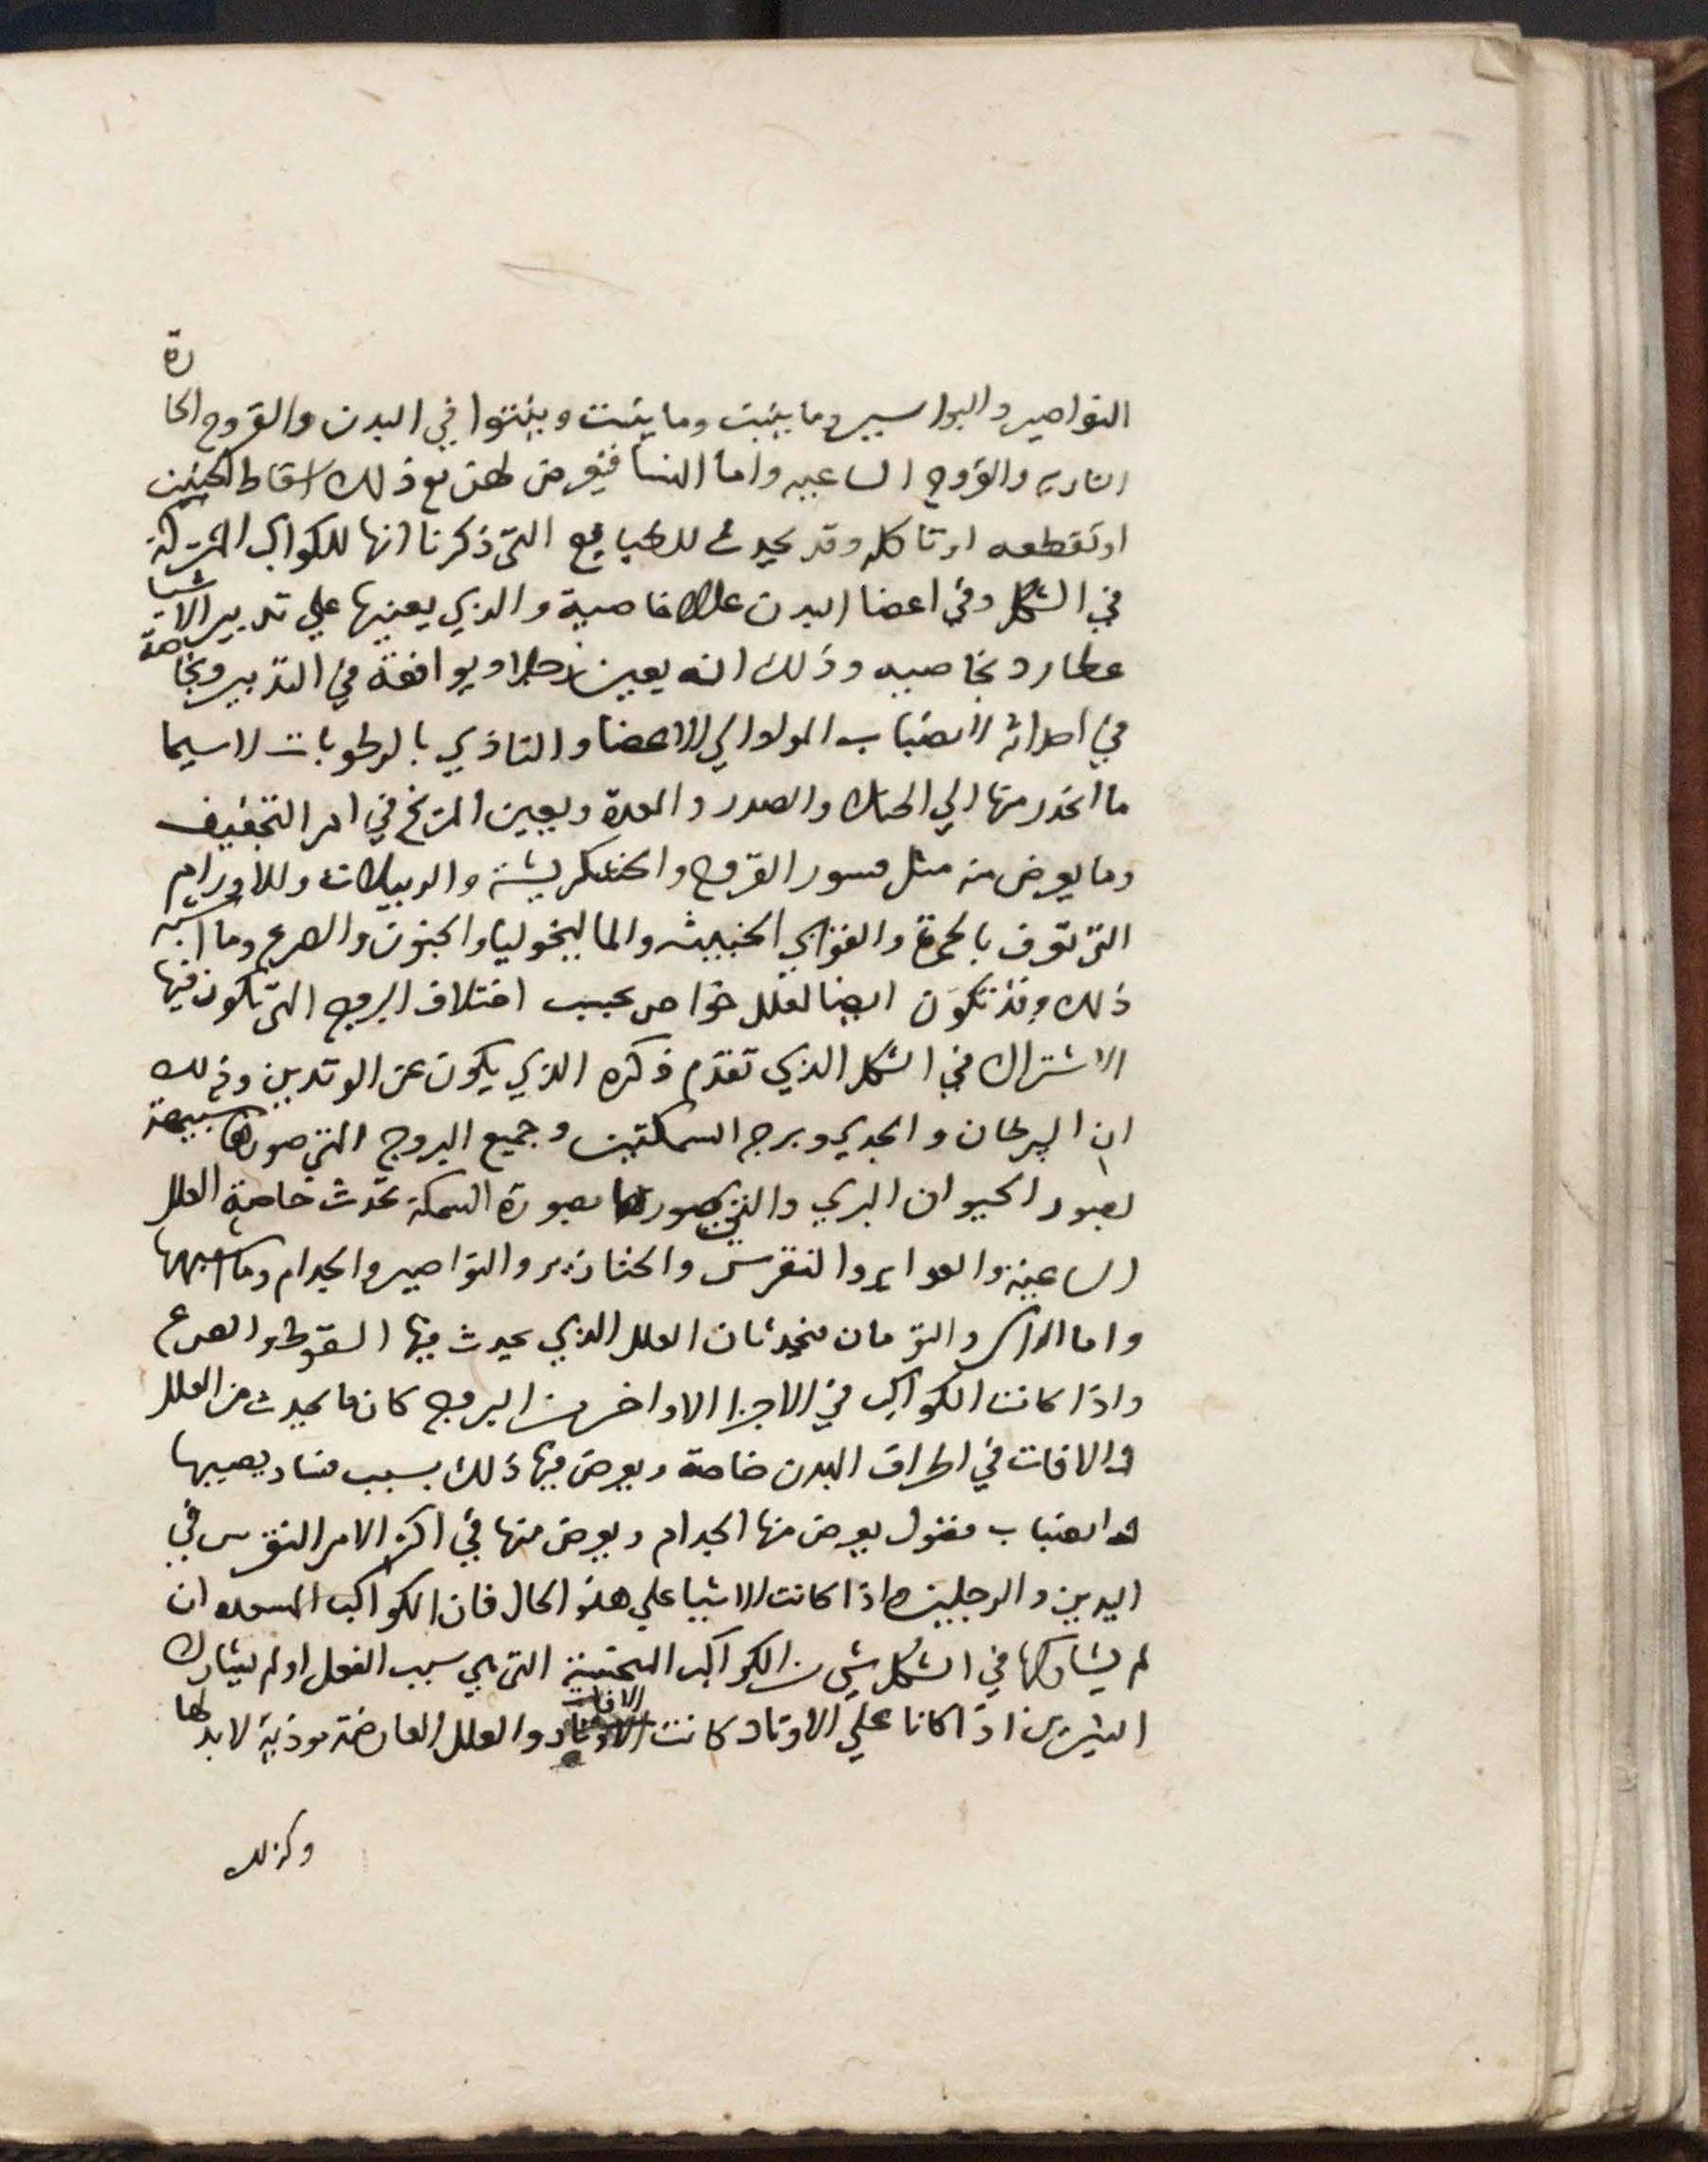 النواصير والبواسير وما ينبت وما ينبت وينتوا في البدن والقروح الحارة
النارية والقروح الساعيه واما النسا فيعرض لهن مع ذلك اسقاط الجنين
او تقطعه او تاكله وقد يحدث للطبايع التي ذكرنا انها للكواكب المشتركة
في الشكل وفي اعضا البدن علل خاصية والذي يعينها علي تدبير الاشيا
عطارد بخاصيه وذلك انه يعين زحلا ويوافقة في التدبير وبخاصة
في احداثه الانصباب المولد الي الاعضا والتاذي بالرطوبات لا سيما
ما انحدر منها الي الحنك والصدر والمعدة ويعين المريخ في امر التجفيف
وما يعرض منه مثل قسور القروح والخشكريشة والدبيلات والاورام
التي تعرف بالحمرة والقوابي الخبيثه والماليخوليا والجنون والصرع وما اشبه
ذلك وقد تكون ايضا لعلل خواص بحسب اختلاف البروج التي تكون فيها
الاشتراك في الشكل الذي تقدم ذكره الذي يكون عن الوتدين وذلك
ان السرطان والجدي وبرج السمكتين وجميع البروج التي صورها شبيهة
بصور الحيوان البري والتي صورها بصورة السمكة تحدث خاصة العلل
الساعية والنقرس والخنازير والنواصير والجدام وما اشبهها
واما الرامي والتومان فيحدثان العلل الذي يحدث فيها السقوط والصرع
واذا كانت الكواكب في الاجزا الاواخر من البروج كان ما يحدث من العلل
والافات في اطراف البدن خاصة ويعرض فيها ذلك بسبب فساد يصيبها
وانصباب فضول يعرض منها الجدام ويعرض منها في اكثر الامر النقرس في
اليدين والرجلين واذا كانت الاشيا علي هذه الحال فان الكواكب المسعده ان
لم يشاركها في الشكل شي من الكواكب التي هي سبب الفعل او لم يشارك
النيرين اذا كانا علي الاوتاد كانت الافات والعلل العارضة موذية لا بد لها
وكذلك